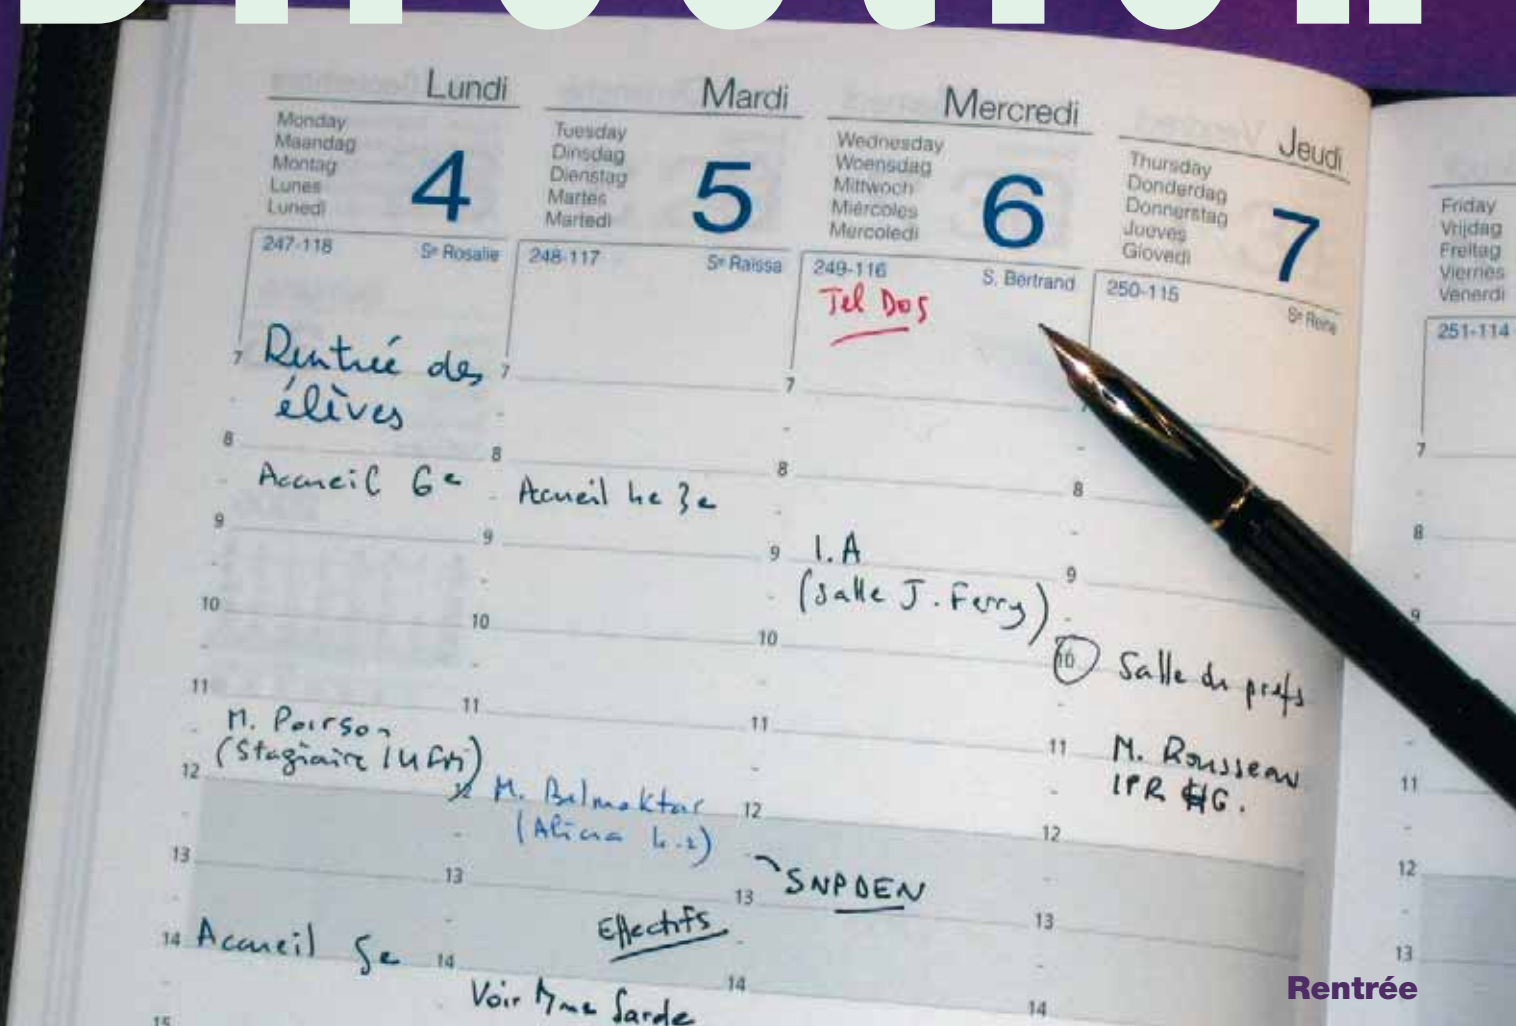 Direction
Lundi
Monday
Maandag
Montag
Lunes
Lunedi
4
247-118
Se Rosalie
Rentrée des
élèves
7
8
Accueil 6e
9
10
11
M. Poirson
(Stagiaire IUFM)
12
13
14 Accueil 5e
15
Mardi
Tuesday
Dinsdag
Dienstag
Martes
Martedi
5
248-117
Se Raissa
7
8
Accueil 4e 3e
9
10
11
12
M. Belmoktar
(Alicia 4.2)
13
Effectifs
14
Voir Mme Sarde
Mercredi
Wednesday
Woensdag
Mittwoch
Miércoles
Mercoledi
6
249-116
S. Bertrand
Tel DOS
7
8
9 I.A
(Salle J. Ferry)
10
11
12
SNPDEN
13
14
Jeudi
Thursday
Donderdag
Donnerstag
Jueves
Giovedi
7
250-115
Se Reine
7
8
9
10 Salle des profs
11 M. Rousseau
IPR HG.
12
13
14
Friday
Vrijdag
Freitag
Viernes
Venerdi
251-114
7
8
9
11
12
13
Rentrée